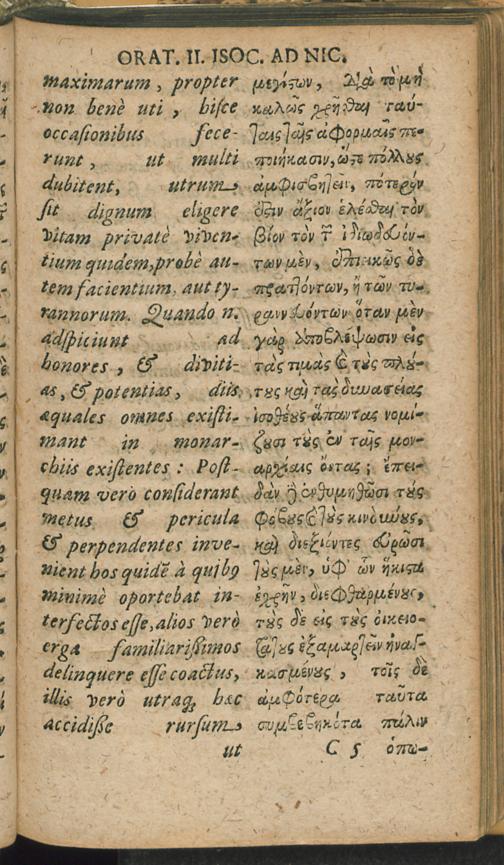 ORAT. II. ISOC. AD NIC.
maximarum, propter
non benè uti, hisce
occasionibus fece-
runt, ut multi
dubitent, utrum
sit dignum eligere
vitam privatè viven-
tium quidem, probè au-
tem facientium, aut ty-
rannorum. Quando n.
adspiciunt ad
honores, & diviti-
as, & potentias, diis
æquales omnes existi-
mant in monar-
chiis existentes: Post-
quam verò considerant
metus & pericula
& perpendentes inve-
nient hos quidē à quibꝰ
minimè oportebat in-
terfectos esse, alios verò
erga familiarissimos
delinquere esse coactus,
illis verò utraq; hæc
accidisse rursum,
ut
μεγίςων, διὰ τὸ μὴ
καλῶς χρῆσθαι ταύ-
ταις ταῖς ἀφορμαῖς πε-
ποιήκασιν, ὥςε πόλλους
ἀμφισβητεῖν, πότερόν
ἐστιν ἄξιον ἑλέσθαι τὸν
βίον τὸν τ͂ ἰδιωτευόν-
των μὲν, ἐπιεικῶς δὲ
πραττόντων, ἢ τῶν τυ-
ραννευόντων ὅταν μὲν
γὰρ ὑποβλέψωσιν εἰς
τὰς τιμὰς καὶ τοὺς πλού-
τους καὶ τὰς δυναςείας
ἰσοθέους ἅπαντας νομί-
ζουσι τοὺς ἐν ταῖς μον-
αρχίαις ὄντας; ἔπει-
δὰν δὲ ἐνθυμηθῶσι τοὺς
φόβους καὶ τοὺς κινδύνους,
καὶ διεξιόντες εὑρῶσι
τοὺς μὲν, ὑφ' ὧν ἥκιςα
ἐχρῆν, διεφθαρμένους,
τοὺς δὲ εἰς τοὺς οἰκειο-
τάτους ἐξαμαρτεῖν ἠναγ-
κασμένους, τοῖς δὲ
ἀμφότερα ταῦτα
συμβεβηκότα πάλιν
C 5 ὁπω-